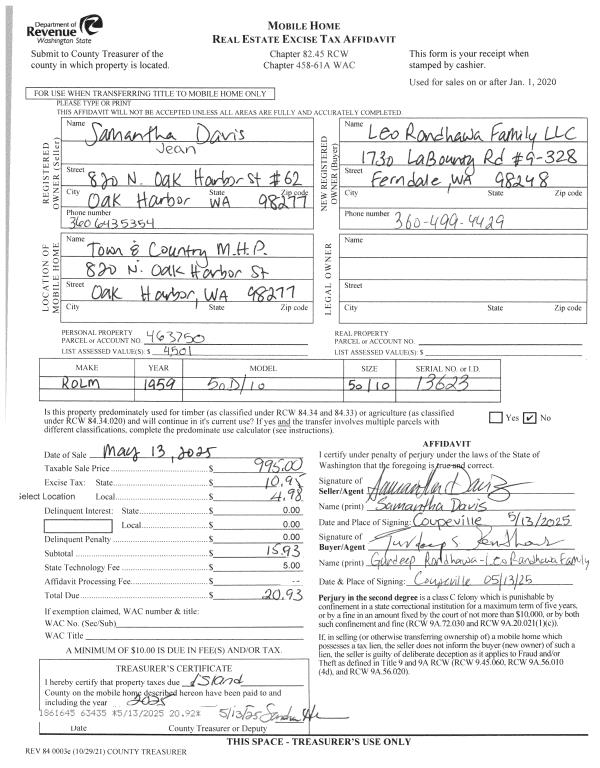 Department of
Revenue
Washington State
Submit to County Treasurer of the
county in which property is located.
MOBILE HOME
REAL ESTATE EXCISE TAX AFFIDAVIT
Chapter 82.45 RCW
Chapter 458-61A WAC
This form is your receipt when
stamped by cashier.
Used for sales on or after Jan. 1, 2020
FOR USE WHEN TRANSFERRING TITLE TO MOBILE HOME ONLY
PLEASE TYPE OR PRINT
THIS AFFIDAVIT WILL NOT BE ACCEPTED UNLESS ALL AREAS ARE FULLY AND ACCURATELY COMPLETED
REGISTERED OWNER (Seller)
Name Samantha Davis
Jean
Street 820 N. Oak Harbor St #62
City State Zip code
Oak Harbor WA 98277
Phone number
360 643 5354
NEW REGISTERED OWNER (Buyer)
Name Leo Randhawa Family LLC
1730 LaBounty Rd #9-328
Street Ferndale, WA 98248
City State Zip code
Phone number 360-499-4429
LOCATION OF MOBILE HOME
Name Town & Country M.H.P.
820 N. Oak Harbor St
Street
Oak Harbor, WA 98277
City State Zip code
LEGAL OWNER
Name
Street
City State Zip code
PERSONAL PROPERTY
PARCEL or ACCOUNT NO. 463750
LIST ASSESSED VALUE(S): $ 4501
REAL PROPERTY
PARCEL or ACCOUNT NO.
LIST ASSESSED VALUE(S): $
MAKE YEAR MODEL SIZE SERIAL NO. or I.D.
ROLM 1959 50D/10 50/10 13623
Is this property predominately used for timber (as classified under RCW 84.34 and 84.33) or agriculture (as classified
under RCW 84.34.020) and will continue in it's current use? If yes and the transfer involves multiple parcels with
different classifications, complete the predominate use calculator (see instructions).
Yes ✔ No
Date of Sale May 13, 2025
Taxable Sale Price $ 995.00
Excise Tax: State $ 10.95
elect Location Local $ 4.98
Delinquent Interest: State $ 0.00
Local $ 0.00
Delinquent Penalty $ 0.00
Subtotal $ 15.93
State Technology Fee $ 5.00
Affidavit Processing Fee $ --
Total Due $ 20.93
If exemption claimed, WAC number & title:
WAC No. (Sec/Sub)
WAC Title
A MINIMUM OF $10.00 IS DUE IN FEE(S) AND/OR TAX.
AFFIDAVIT
I certify under penalty of perjury under the laws of the State of
Washington that the foregoing is true and correct.
Signature of
Seller/Agent Samantha Davis
Name (print) Samantha Davis
Date and Place of Signing: Coupeville 5/13/2025
Signature of
Buyer/Agent
Name (print) Gurdeep Randhawa - Leo Randhawa Family
Date & Place of Signing: Coupeville 05/13/25
Perjury in the second degree is a class C felony which is punishable by
confinement in a state correctional institution for a maximum term of five years,
or by a fine in an amount fixed by the court of not more than $10,000, or by both
such confinement and fine (RCW 9A.72.030 and RCW 9A.20.021(1)(c)).
If, in selling (or otherwise transferring ownership of) a mobile home which
possesses a tax lien, the seller does not inform the buyer (new owner) of such a
lien, the seller is guilty of deliberate deception as it applies to Fraud and/or
Theft as defined in Title 9 and 9A RCW (RCW 9.45.060, RCW 9A.56.010
(4d), and RCW 9A.56.020).
TREASURER'S CERTIFICATE
I hereby certify that property taxes due Island
County on the mobile home described hereon have been paid to and
including the year 2025
1861645 63435 *5/13/2025 20.92* 5/13/25
Date County Treasurer or Deputy
THIS SPACE - TREASURER'S USE ONLY
REV 84 0003e (10/29/21) COUNTY TREASURER